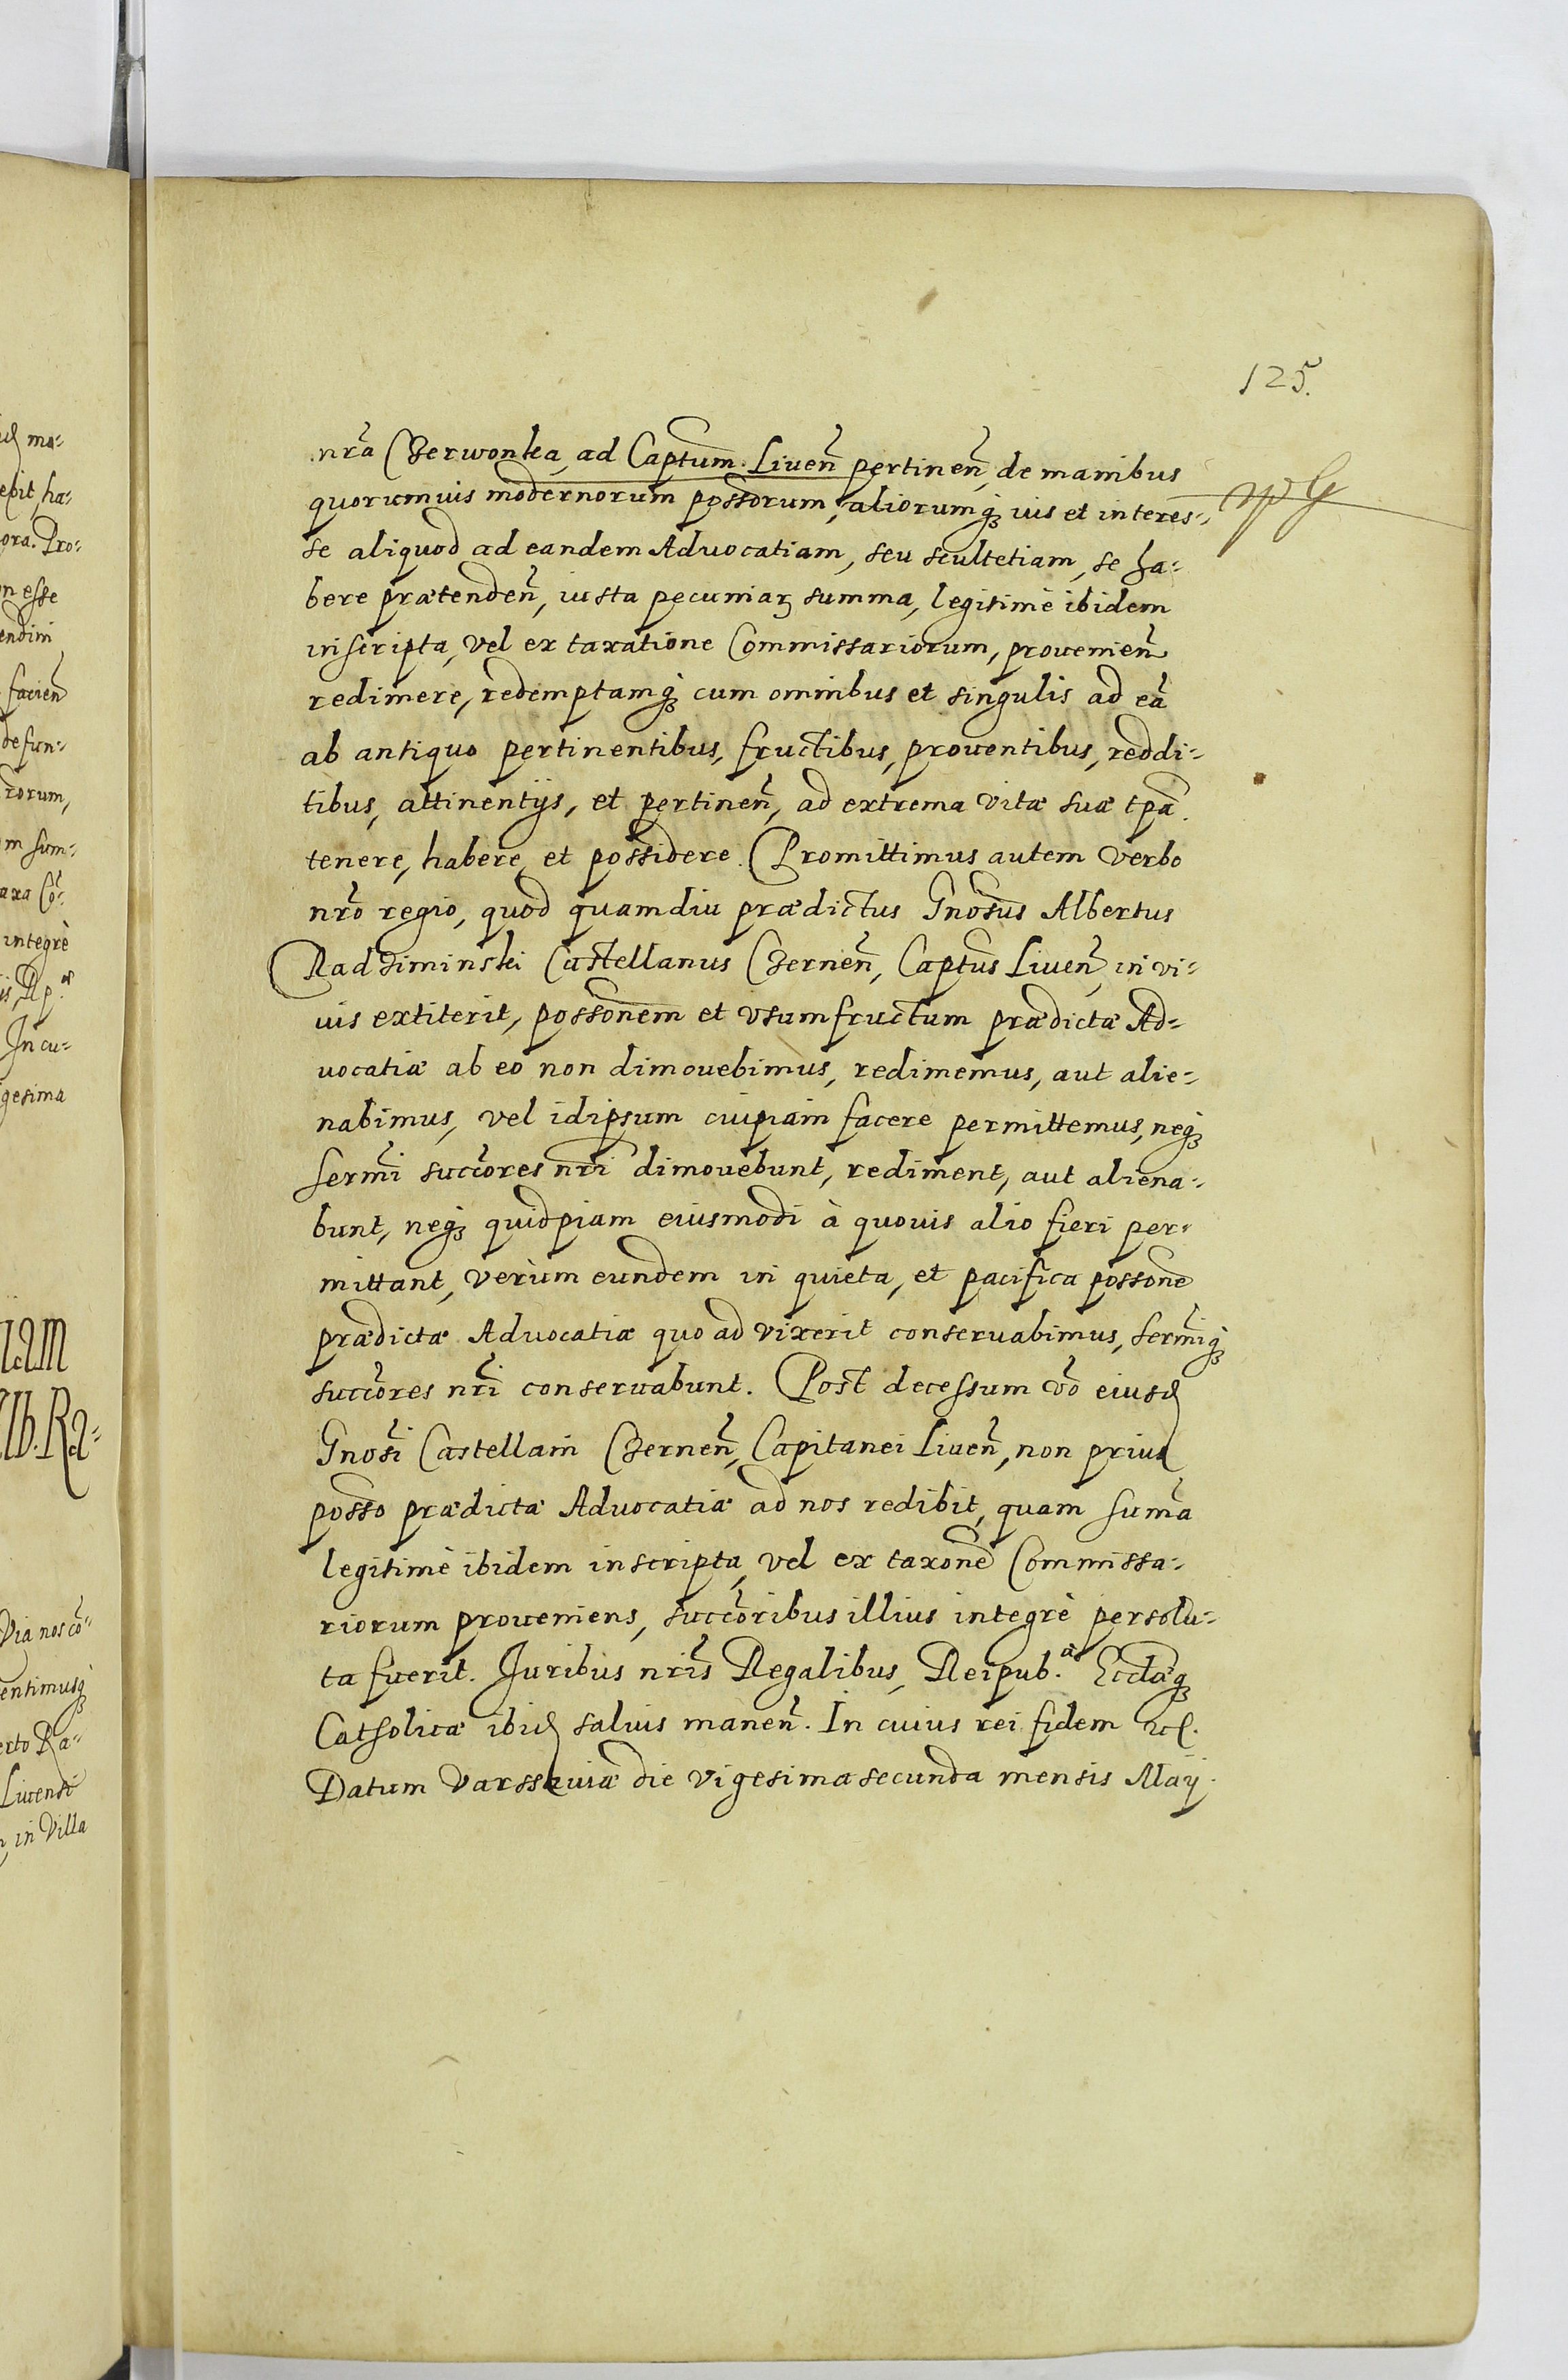 125.
nr̃a Czerwonka, ad Capt̃um Liueñ pertineñ, de manibus
quorumuis modernorum poss̃orum, aliorumq́ꝫ ius et interes-
se aliquod ad eandem Aduocatiam, seu scultetiam, se ha-
bere prætendeñ, iusta pecuniaꝝ summa, legitimè ibidem
inscripta, vel ex taxatione Commissariorum, prouenieñ
redimere, redemptamq́ꝫ cum omnibus et singulis ad eã
ab antiquo pertinentibus, fructibus, prouentibus, reddi-
tibus, attinentijs, et pertineñ, ad extrema vitæ suæ tp̃a
tenere, habere, et possidere. Promittimus autem verbo
nr̃o regio, quod quamdiu prædictus Gnos̃us Albertus
Radziminski Castellanus Czerneñ, Capt̃us Liueñ, in vi-
uis extiterit, poss̃onem et vsumfructum prædictæ Ad-
uocatiæ ab eo non dimouebimus, redimemus, aut alie-
nabimus, vel idipsum cuipiam facere permittemus, neqꝫ
serm̃i succ̃ores nr̃i dimouebunt, rediment, aut aliena-
bunt, neq́ꝫ quidpiam eiusmodi à quouis alio fieri per-
mittant, verùm eundem in quieta, et pacifica poss̃one
prædictæ Aduocatiæ quo ad vixerit conseruabimus, serm̃iq́ꝫ
succ̃ores nr̃i conseruabunt. Post decessum võ eiusd̃
Gnos̃i Castellani Czerneñ, Capitanei Liueñ, non prius
poss̃o prædictæ Aduocatiæ ad nos redibit, quam sum̃a
legitimè ibidem inscripta, vel ex tax̃one Commissa-
riorum proueniens, succ̃oribus illius integrè persolu-
ta fuerit. Juribus nr̃is Regalibus, Reipub.ᵃᵉ Eccl̃æqꝫ
Catholicæ ibid̃ saluis maneñ. In cuius rei fidem ꝛc̃.
Datum Varssauiæ die vigesima secunda mensis Maij.